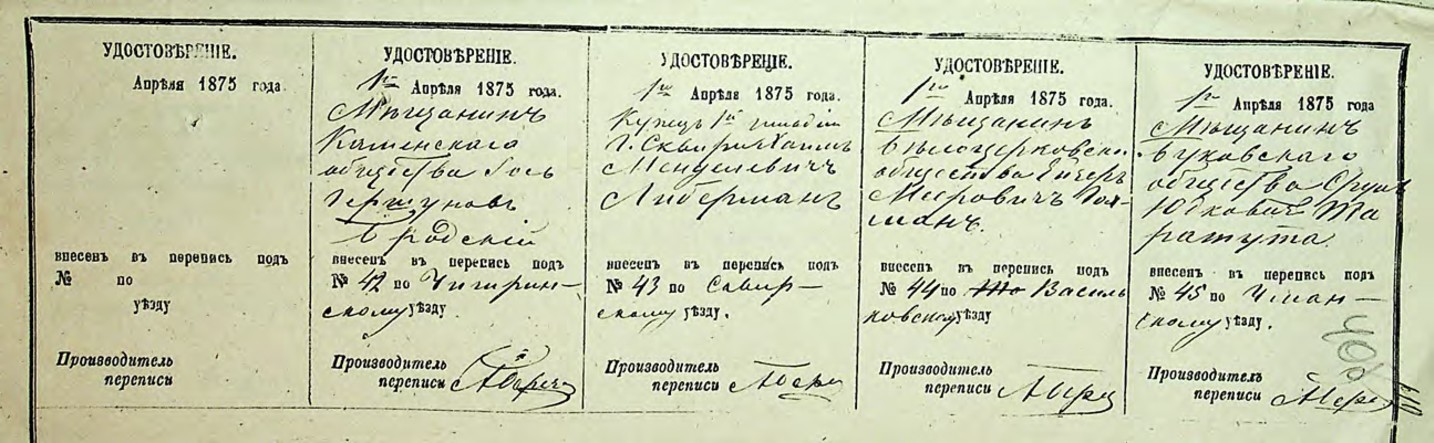 УДОСТОВѢРЕНІЕ.
Апрѣля 1875 года.
внесенъ въ перепись подъ
№ по
уѣзду
Производитель
переписи
УДОСТОВѢРЕНІЕ.
1го Апрѣля 1875 года.
Мѣщанинъ
Каменскаго
общества Гось
Гершуновъ
Бродскій
внесенъ въ перепись подъ
№ 42 по Чигирин-
скому уѣзду.
Производитель
переписи
УДОСТОВѢРЕНІЕ.
1го Апрѣля 1875 года.
Купецъ 1й гильдіи
г. Сквиры Хаимъ
Менделевичъ
Либерманъ
внесенъ въ перепись подъ
№ 43 по Сквир-
скому уѣзду.
Производитель
переписи
УДОСТОВѢРЕНІЕ.
1го Апрѣля 1875 года.
Мѣщанинъ
Бѣлоцерковска
общества
Меровичъ
манъ.
внесенъ въ перепись подъ
№ 44 по Василь
ковскому уѣзду
Производитель
переписи
УДОСТОВѢРЕНІЕ.
1го Апрѣля 1875 года
Мѣщанинъ
Букскаго
общества Срул
Юдковичъ Та
ратута.
внесенъ въ перепись подъ
№ 45 по Уман-
скому уѣзду.
Производитель
переписи